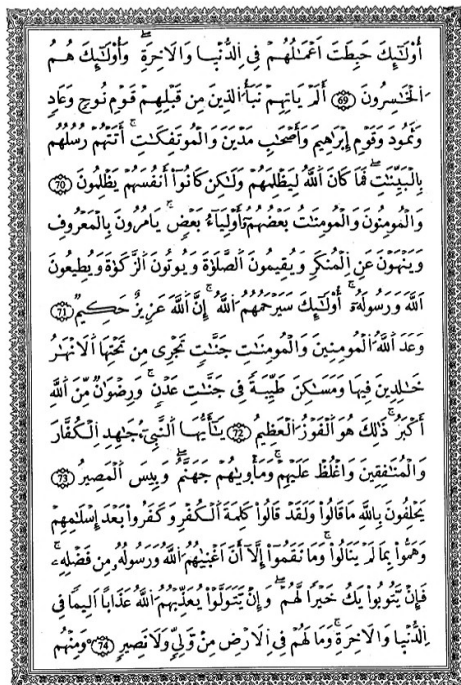 أُوْلَٰٓئِكَ حَبِطَتَ اَعْمَٰلُهُمْ فِى اِلدُّنْيَا وَالَاخِرَةِ وَأُوْلَٰٓئِكَ هُمُ
اُلْخَٰسِرُونَ 69 أَلَمْ يَاتِهِمْ نَبَأُ الذِينَ مِن قَبْلِهِمْ قَوْمِ نُوحٍ وَعَادٍ
وَثَمُودَ وَقَوْمِ إِبْرَٰهِيمَ وَأَصْحَٰبِ مَدْيَنَ وَالْمُوتَفِكَٰتِ أَتَتْهُمْ رُسُلُهُم
بِالْبَيِّنَٰتِ فَمَا كَانَ اَللَّهُ لِيَظْلِمَهُمْ وَلَٰكِن كَانُوٓاْ أَنفُسَهُمْ يَظْلِمُونَ 70
وَالْمُومِنُونَ وَالْمُومِنَٰتُ بَعْضُهُمُۥٓ أَوْلِيَآءُ بَعْضٍ يَامُرُونَ بِالْمَعْرُوفِ
وَيَنْهَوْنَ عَنِ اِلْمُنكَرِ وَيُقِيمُونَ اَلصَّلَوٰةَ وَيُوتُونَ اَلزَّكَوٰةَ وَيُطِيعُونَ
اَللَّهَ وَرَسُولَهُۥٓ أُوْلَٰٓئِكَ سَيَرْحَمُهُمُ اُللَّهُ إِنَّ اَللَّهَ عَزِيزٌ حَكِيمٌ 71
وَعَدَ اَللَّهُ اُلْمُومِنِينَ وَالْمُومِنَٰتِ جَنَّٰتٍ تَجْرِى مِن تَحْتِهَا اَلَانْهَٰرُ
خَٰلِدِينَ فِيهَا وَمَسَٰكِنَ طَيِّبَةً فِى جَنَّٰتِ عَدْنٍ وَرِضْوَٰنٌ مِّنَ اَللَّهِ
أَكْبَرُ ذَٰلِكَ هُوَ اَلْفَوْزُ اُلْعَظِيمُ 72 يَٰٓأَيُّهَا اَلنَّبِىٓءُ جَٰهِدِ اِلْكُفَّارَ
وَالْمُنَٰفِقِينَ وَاغْلُظْ عَلَيْهِمْ وَمَأْوٜيٰهُمْ جَهَنَّمُ وَبِيسَ اَلْمَصِيرُ 73
يَحْلِفُونَ بِاللَّهِ مَا قَالُواْ وَلَقَدْ قَالُواْ كَلِمَةَ اَلْكُفْرِ وَكَفَرُواْ بَعْدَ إِسْلَٰمِهِمْ
وَهَمُّواْ بِمَا لَمْ يَنَالُواْ وَمَا نَقَمُوٓاْ إِلَّآ أَنَ اَغْنٜيٰهُمُ اُللَّهُ وَرَسُولُهُۥ مِن فَضْلِهِۦ
فَإِنْ يَّتُوبُواْ يَكُ خَيْرًا لَّهُمْ وَإِنْ يَّتَوَلَّوْاْ يُعَذِّبْهُمُ اُللَّهُ عَذَابًا اَلِيمًا فِى
اِلدُّنْيَا وَالَاخِرَةِ وَمَا لَهُمْ فِى اِلَارْضِ مِنْ وَّلِىٍّ وَلَا نَصِيرٍ 74 وَمِنْهُم